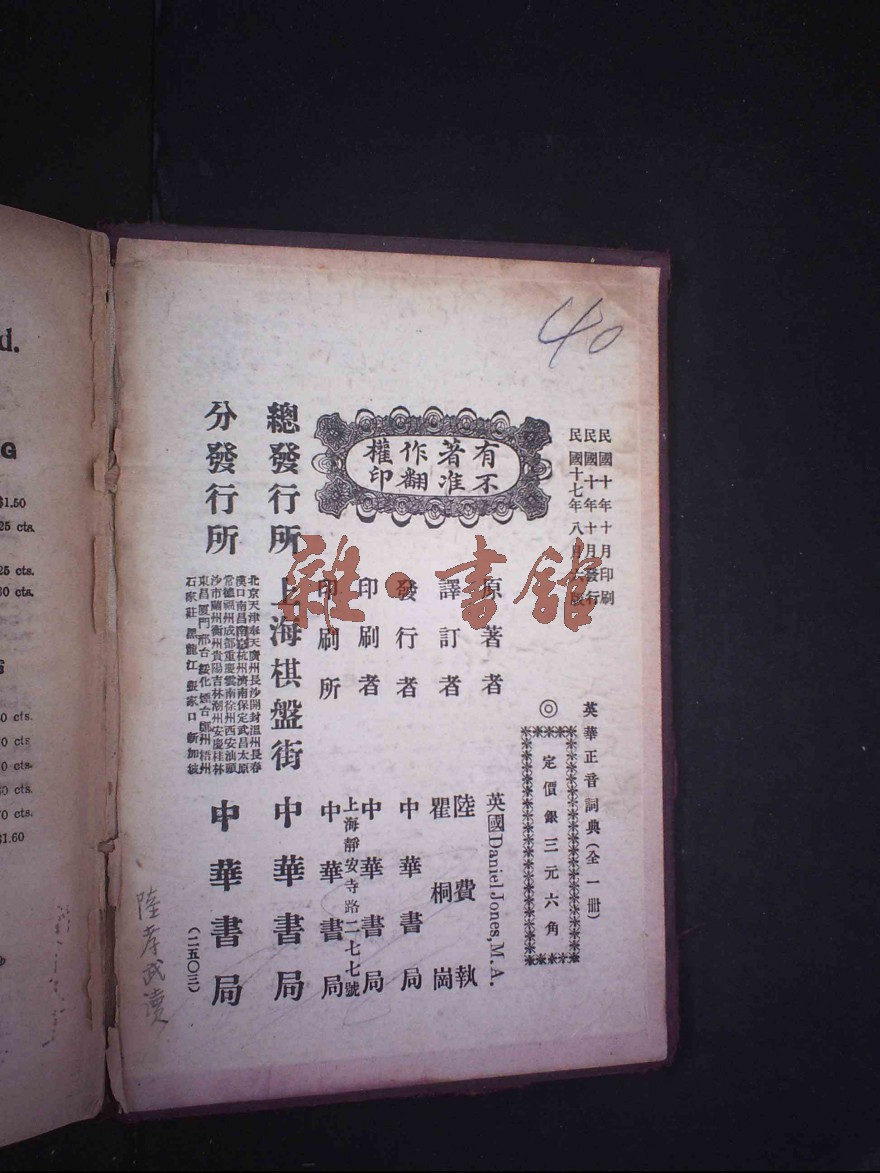 40
民國十年十月印刷
民國十年十月發行
民國十七年八月六版
英華正音詞典(全一冊)
◎定價銀三元六角
有不
著准
作翻
權印
原著者 英國Daniel Jones, M.A.
譯訂者 陸費執 瞿桐崗
發行者 中華書局
印刷者 中華書局
上海靜安寺路二七七號
印刷所 中華書局
總發行所 上海棋盤街 中華書局
分發行所
北京天津奉天廣州長沙開封溫州長春
漢口南昌南京杭州濟南保定武昌太原
常德福州成都重慶雲南徐州西安汕頭
沙市蘭州衡州貴陽吉林潮州安慶桂林
東昌廈門邢台綏化煙台梧州
石家莊 黑龍江 張家口 新加坡
中華書局
(二五〇三)
陸孝武讀
雜·書館
d.
G
$1.50
25 cts.
25 cts.
30 cts.
0 cts.
70 cts
0 cts.
30 cts.
70 cts
$1.60